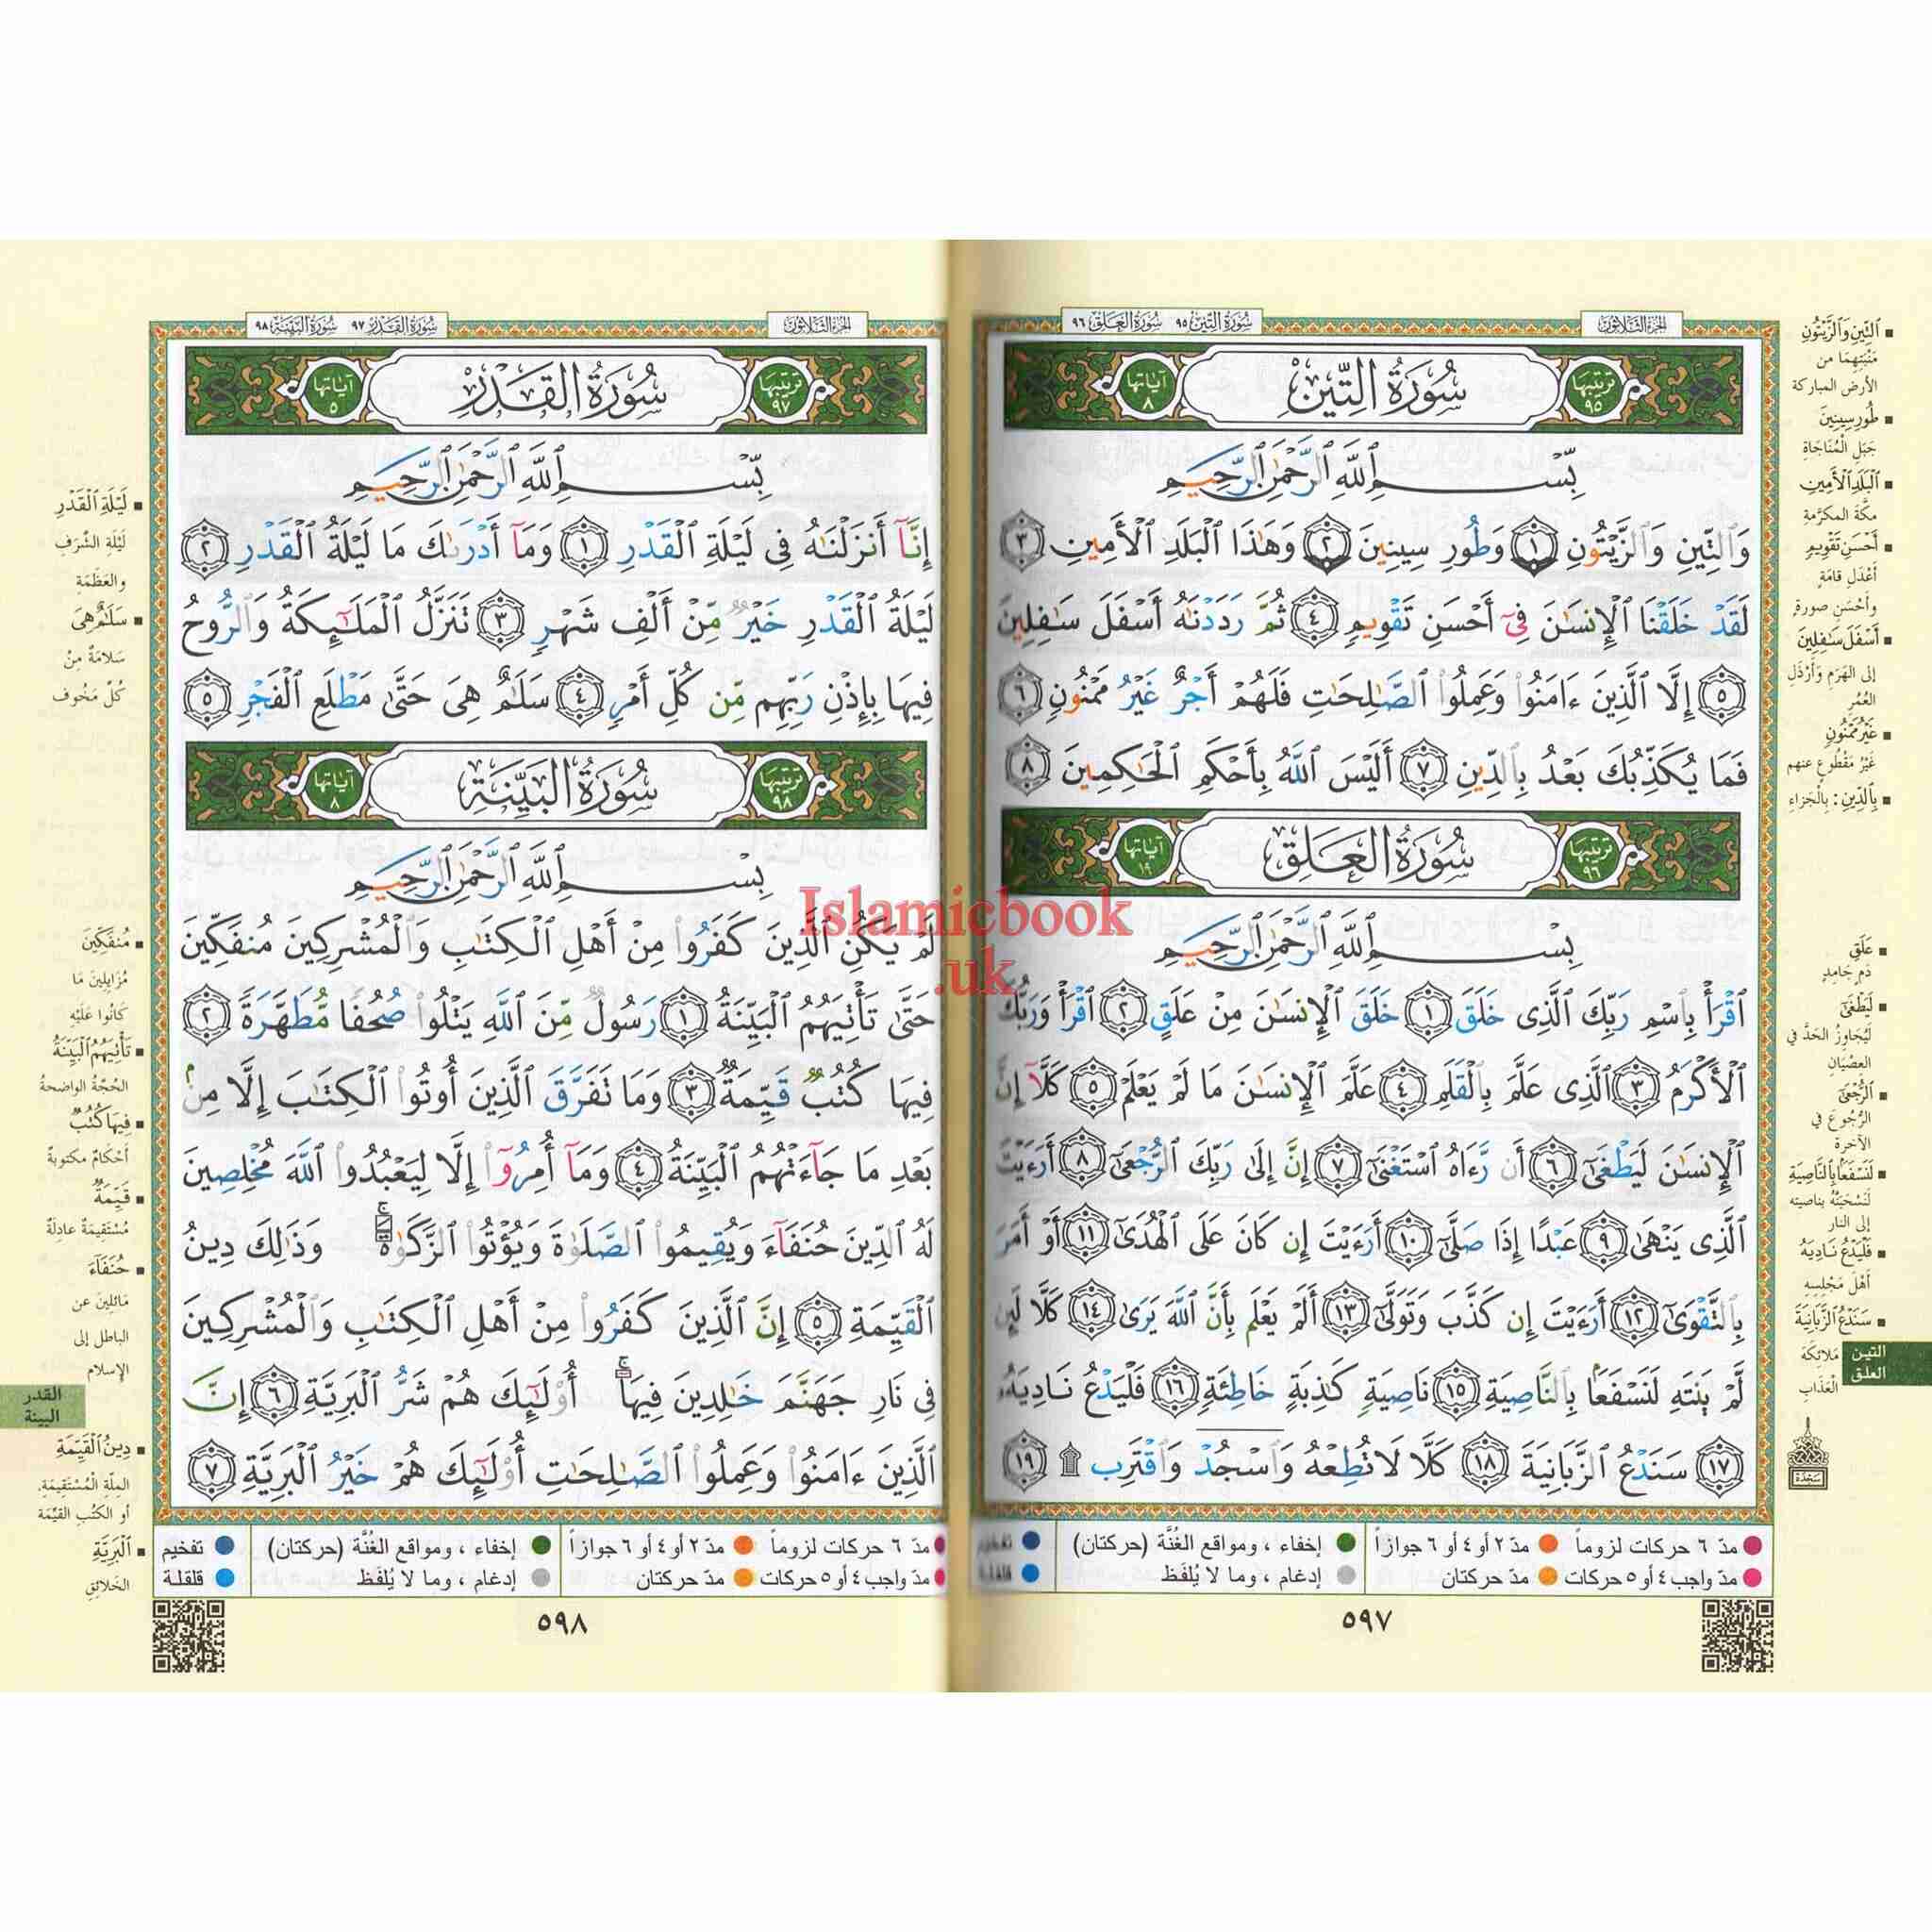 الجزء الثلاثون
سورة التين ٩٥ سورة العلق ٩٦
ترتيبها ٩٥
سُورَةُ التِّينِ
آياتها ٨
بِّسْمِ ٱللَّهِ ٱلرَّحْمَٰنِ ٱلرَّحِيمِ
وَٱلتِّينِ وَٱلزَّيْتُونِ ١ وَطُورِ سِينِينَ ٢ وَهَٰذَا ٱلْبَلَدِ ٱلْأَمِينِ ٣
لَقَدْ خَلَقْنَا ٱلْإِنسَٰنَ فِىٓ أَحْسَنِ تَقْوِيمٍ ٤ ثُمَّ رَدَدْنَٰهُ أَسْفَلَ سَٰفِلِينَ
٥ إِلَّا ٱلَّذِينَ ءَامَنُوا۟ وَعَمِلُوا۟ ٱلصَّٰلِحَٰتِ فَلَهُمْ أَجْرٌ غَيْرُ مَمْنُونٍ ٦
فَمَا يُكَذِّبُكَ بَعْدُ بِٱلدِّينِ ٧ أَلَيْسَ ٱللَّهُ بِأَحْكَمِ ٱلْحَٰكِمِينَ ٨
ترتيبها ٩٦
سُورَةُ العَلَقِ
آياتها ١٩
بِسْمِ ٱللَّهِ ٱلرَّحْمَٰنِ ٱلرَّحِيمِ
ٱقْرَأْ بِٱسْمِ رَبِّكَ ٱلَّذِى خَلَقَ ١ خَلَقَ ٱلْإِنسَٰنَ مِنْ عَلَقٍ ٢ ٱقْرَأْ وَرَبُّكَ
ٱلْأَكْرَمُ ٣ ٱلَّذِى عَلَّمَ بِٱلْقَلَمِ ٤ عَلَّمَ ٱلْإِنسَٰنَ مَا لَمْ يَعْلَمْ ٥ كَلَّآ إِنَّ
ٱلْإِنسَٰنَ لَيَطْغَىٰٓ ٦ أَن رَّءَاهُ ٱسْتَغْنَىٰٓ ٧ إِنَّ إِلَىٰ رَبِّكَ ٱلرُّجْعَىٰٓ ٨ أَرَءَيْتَ
ٱلَّذِى يَنْهَىٰ ٩ عَبْدًا إِذَا صَلَّىٰٓ ١٠ أَرَءَيْتَ إِن كَانَ عَلَى ٱلْهُدَىٰٓ ١١ أَوْ أَمَرَ
بِٱلتَّقْوَىٰٓ ١٢ أَرَءَيْتَ إِن كَذَّبَ وَتَوَلَّىٰٓ ١٣ أَلَمْ يَعْلَم بِأَنَّ ٱللَّهَ يَرَىٰ ١٤ كَلَّا لَئِن
لَّمْ يَنتَهِ لَنَسْفَعًۢا بِٱلنَّاصِيَةِ ١٥ نَاصِيَةٍ كَٰذِبَةٍ خَاطِئَةٍ ١٦ فَلْيَدْعُ نَادِيَهُۥ
١٧ سَنَدْعُ ٱلزَّبَانِيَةَ ١٨ كَلَّا لَا تُطِعْهُ وَٱسْجُدْ وَٱقْتَرِب ۩ ١٩
ٱلتِّينِ وَٱلزَّيْتُونِ
مَنْبَتِهِمَا من
الأرض المباركة
طُورِ سِينِينَ
جَبَلِ الْمُنَاجَاةِ
ٱلْبَلَدِ ٱلْأَمِينِ
مكَّةَ المكرَّمةِ
أَحْسَنِ تَقْوِيمٍ
أعْدَلِ قامَةٍ
وأحْسَنِ صورةٍ
أَسْفَلَ سَٰفِلِينَ
إلى الهَرَمِ وَأرْذَلِ
العُمُرِ
غَيْرُ مَمْنُونٍ
غَيْرُ مَقْطُوعٍ عنهم
بِٱلدِّينِ: بِالْجَزاءِ
عَلَقٍ
دَمٍ جَامِدٍ
لَيَطْغَىٰٓ
لَيُجاوِزُ الحَدَّ في
العِصْيَانِ
ٱلرُّجْعَىٰٓ
الرُّجُوعَ في
الآخرة
لَنَسْفَعًۢا بِٱلنَّاصِيَةِ
لَنَسْحَبَنَّهُ بناصيته
إلى النار
فَلْيَدْعُ نَادِيَهُۥ
أهْلَ مَجْلِسِهِ
سَنَدْعُ ٱلزَّبَانِيَةَ
مَلائِكَةَ
الْعَذَابِ
التين
العلق
سجدة
مدّ ٦ حركات لزوماً مدّ ٢ أو ٤ أو ٦ جوازاً إخفاء ، ومواقع الغُنَّة (حركتان) تفخيم
مدّ واجب ٤ أو ٥ حركات مدّ حركتان إدغام ، وما لا يُلفَظ قلقلة
٥٩٧
الجزء الثلاثون
سورة القدر ٩٧ سورة البينة ٩٨
ترتيبها ٩٧
سُورَةُ القَدْرِ
آياتها ٥
بِّسْمِ ٱللَّهِ ٱلرَّحْمَٰنِ ٱلرَّحِيمِ
إِنَّآ أَنزَلْنَٰهُ فِى لَيْلَةِ ٱلْقَدْرِ ١ وَمَآ أَدْرَىٰكَ مَا لَيْلَةُ ٱلْقَدْرِ ٢
لَيْلَةُ ٱلْقَدْرِ خَيْرٌ مِّنْ أَلْفِ شَهْرٍ ٣ تَنَزَّلُ ٱلْمَلَٰٓئِكَةُ وَٱلرُّوحُ
فِيهَا بِإِذْنِ رَبِّهِم مِّن كُلِّ أَمْرٍ ٤ سَلَٰمٌ هِىَ حَتَّىٰ مَطْلَعِ ٱلْفَجْرِ ٥
ترتيبها ٩٨
سُورَةُ البَيِّنَةِ
آياتها ٨
بِسْمِ ٱللَّهِ ٱلرَّحْمَٰنِ ٱلرَّحِيمِ
لَمْ يَكُنِ ٱلَّذِينَ كَفَرُوا۟ مِنْ أَهْلِ ٱلْكِتَٰبِ وَٱلْمُشْرِكِينَ مُنفَكِّينَ
حَتَّىٰ تَأْتِيَهُمُ ٱلْبَيِّنَةُ ١ رَسُولٌ مِّنَ ٱللَّهِ يَتْلُوا۟ صُحُفًا مُّطَهَّرَةً ٢
فِيهَا كُتُبٌ قَيِّمَةٌ ٣ وَمَا تَفَرَّقَ ٱلَّذِينَ أُوتُوا۟ ٱلْكِتَٰبَ إِلَّا مِنۢ
بَعْدِ مَا جَآءَتْهُمُ ٱلْبَيِّنَةُ ٤ وَمَآ أُمِرُوٓا۟ إِلَّا لِيَعْبُدُوا۟ ٱللَّهَ مُخْلِصِينَ
لَهُ ٱلدِّينَ حُنَفَآءَ وَيُقِيمُوا۟ ٱلصَّلَوٰةَ وَيُؤْتُوا۟ ٱلزَّكَوٰةَ ۚ وَذَٰلِكَ دِينُ
ٱلْقَيِّمَةِ ٥ إِنَّ ٱلَّذِينَ كَفَرُوا۟ مِنْ أَهْلِ ٱلْكِتَٰبِ وَٱلْمُشْرِكِينَ
فِى نَارِ جَهَنَّمَ خَٰلِدِينَ فِيهَآ ۚ أُو۟لَٰٓئِكَ هُمْ شَرُّ ٱلْبَرِيَّةِ ٦ إِنَّ
ٱلَّذِينَ ءَامَنُوا۟ وَعَمِلُوا۟ ٱلصَّٰلِحَٰتِ أُو۟لَٰٓئِكَ هُمْ خَيْرُ ٱلْبَرِيَّةِ ٧
لَيْلَةِ ٱلْقَدْرِ
لَيْلَةِ الشَّرَفِ
والعَظَمَةِ
سَلَٰمٌ هِىَ
سَلامَةٌ مِنْ
كُلِّ مَخُوف
مُنفَكِّينَ
مُزَايِلِينَ مَا
كَانُوا عَلَيْهِ
تَأْتِيَهُمُ ٱلْبَيِّنَةُ
الحُجَّةُ الواضحةُ
فِيهَا كُتُبٌ
أحْكَامٌ مكتوبةٌ
قَيِّمَةٌ
مُسْتَقِيمَةٌ عادِلةٌ
حُنَفَآءَ
مَائِلِينَ عن
الباطل إلى
الإسلام
القدر
البينة
دِينُ ٱلْقَيِّمَةِ
الملّة الْمُسْتَقِيمَةِ.
أو الكتب القيّمة
ٱلْبَرِيَّةِ
الخَلائِقِ
مدّ ٦ حركات لزوماً مدّ ٢ أو ٤ أو ٦ جوازاً إخفاء ، ومواقع الغُنَّة (حركتان) تفخيم
مدّ واجب ٤ أو ٥ حركات مدّ حركتان إدغام ، وما لا يُلفَظ قلقلة
٥٩٨
Islamicbook
.uk